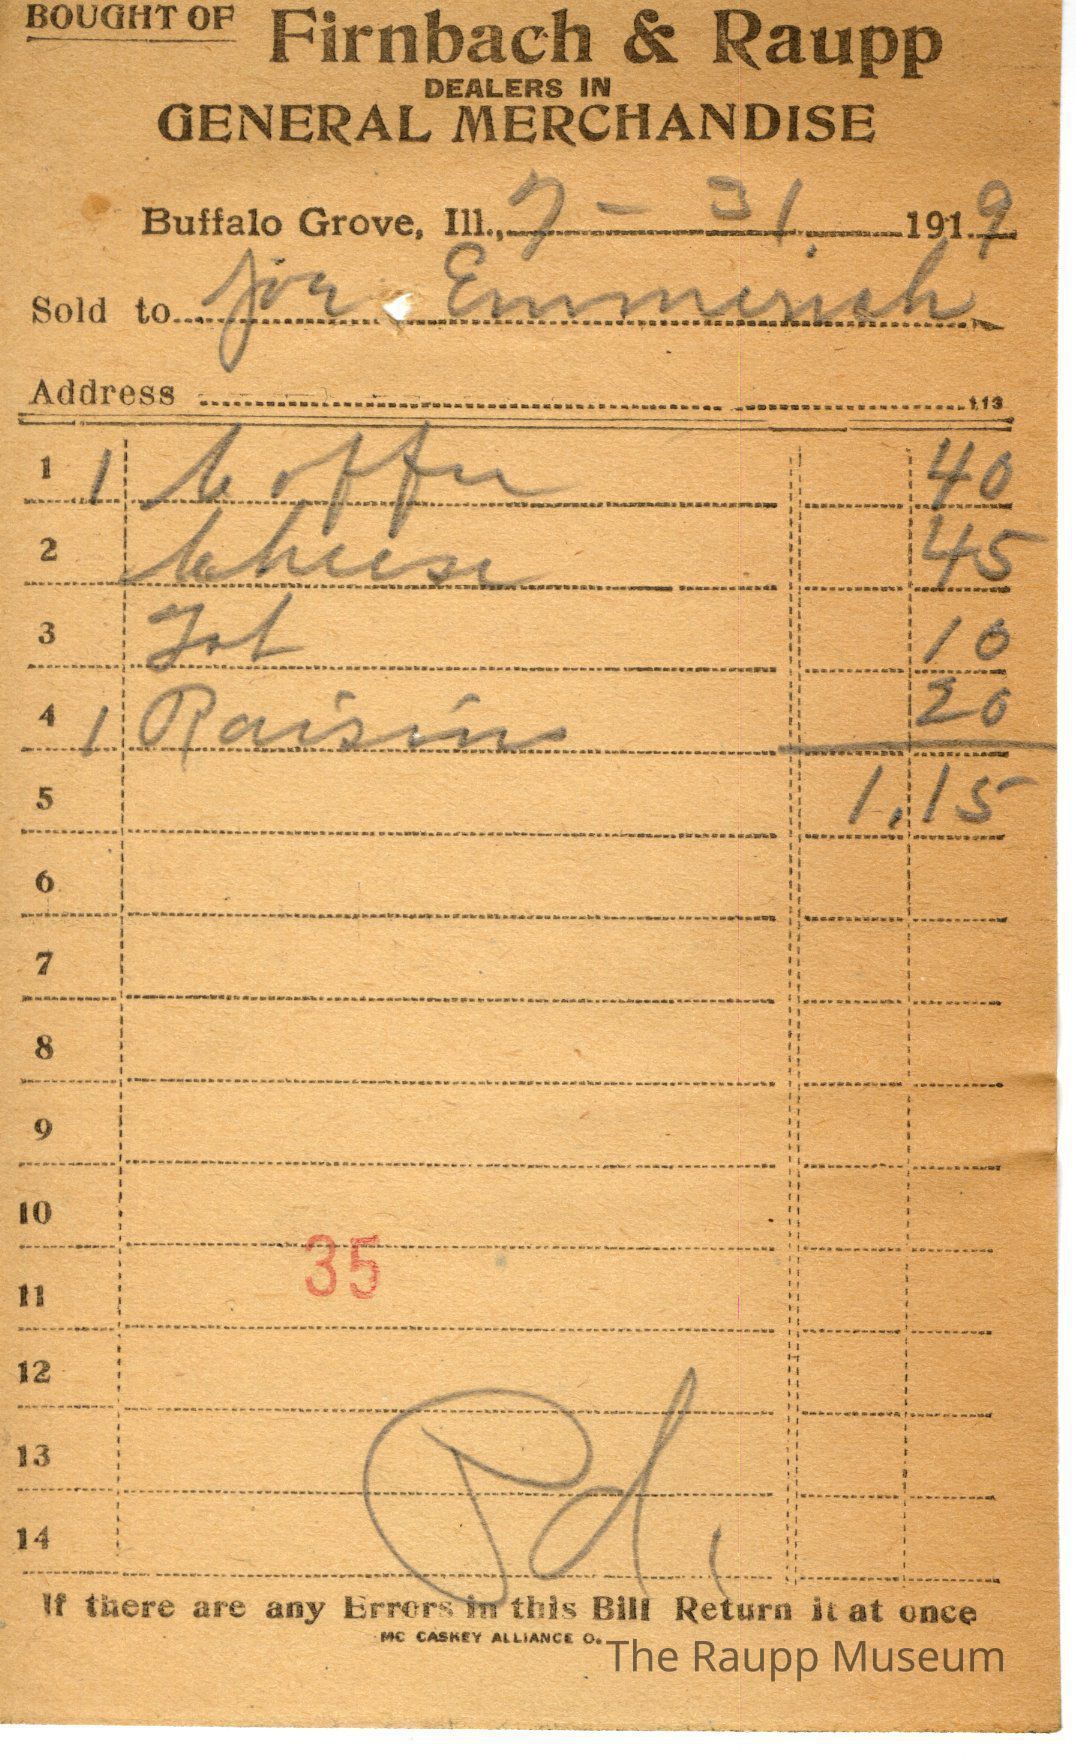 BOUGHT OF Firnbach & Raupp
DEALERS IN
GENERAL MERCHANDISE
Buffalo Grove, Ill., 7 - 31. 1919
Sold to Joe Emmerich
Address
113
1 1 Coffee 40
2 Cheese 45
3 10
4 1 Raisins 20
5 1.15
6
7
8
9
10
35
11
12
13
Pd.
14
If there are any Errors in this Bill Return it at once
MC CASKEY ALLIANCE O.
The Raupp Museum